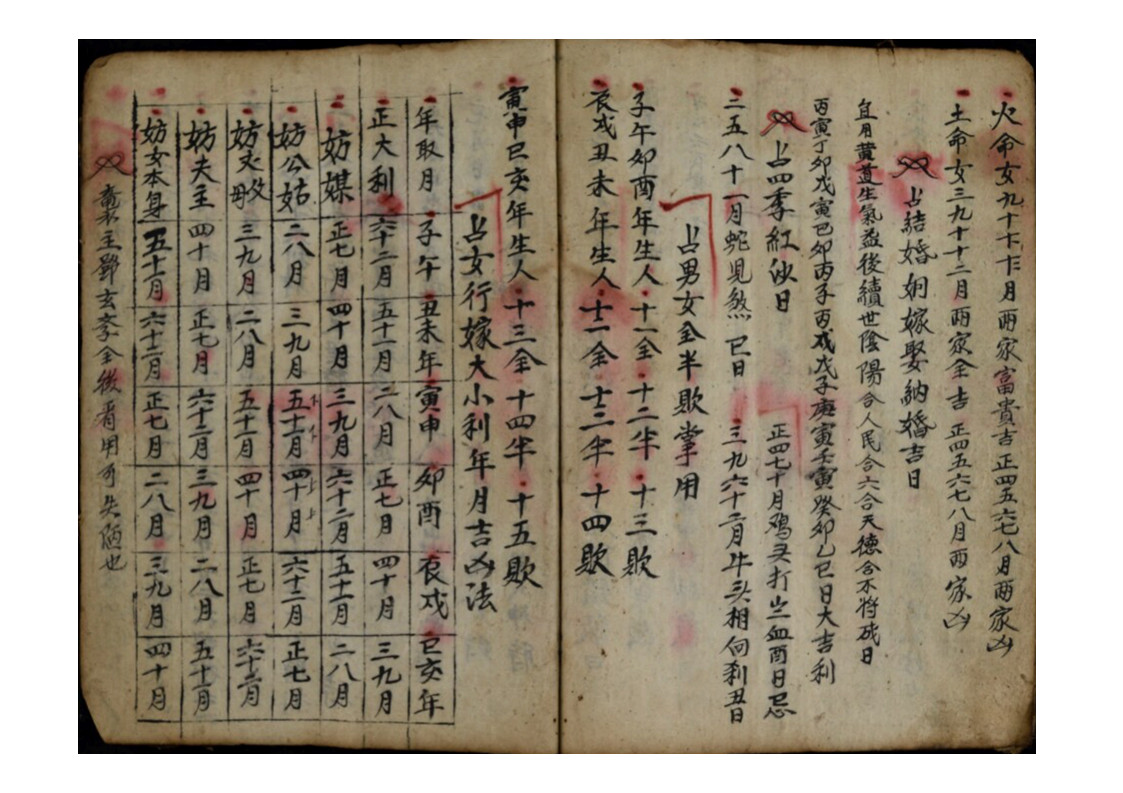 火命女九十十十月两家富貴吉正四五六七八月两家凶
土命女三九十十二月两家全吉 正四五六七八月两家凶
占結婚姻嫁娶納婚吉日
且用黄道生氣益後續世陰陽合人民合六合天德合不將成日
丙寅丁卯戊寅己卯丙子丙戌戊子庚寅壬寅癸卯乙巳日大吉利
占四季紅沙日 正四七十月鸡头打出血酉日忌
二五八十一月蛇見煞巳日 三九六十二月牛头相向刹丑日
占男女全半歟掌用
子午卯酉年生人·十一全·十二半·十三歟
亥戌丑未年生人·十二全·十三半·十四歟
寅申巳亥年生人·十三全·十四半·十五歟
占女行嫁大小利年月吉凶法
年取月 子午 丑未年 寅申 卯酉 亥戌 巳亥年
正大利 六十二月 五十一月 二八月 正七月 四十月 三九月
妨媒 正七月 四十月 三九月 六十二月 五十一月 二八月
妨公姑 二八月 三九月 五十一月 四十月 六十二月 正七月
妨父母 三九月 二八月 五十一月 四十月 正七月 六十二月
妨夫主 四十月 正七月 六十二月 三九月 二八月 五十一月
妨女本身 五十一月 六十二月 正七月 二八月 三九月 四十月
主鄧玄李全後看用可失陋也